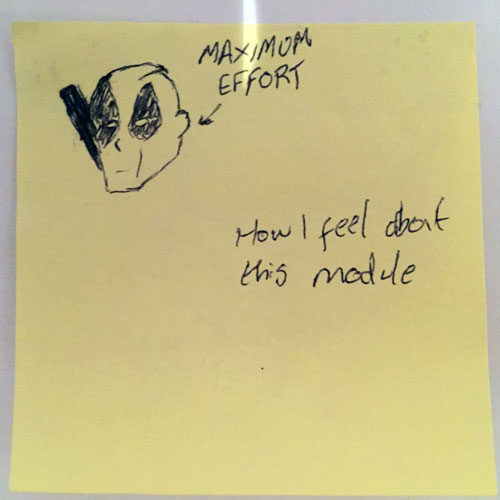 MAXIMUM
EFFORT
How I feel about
this module